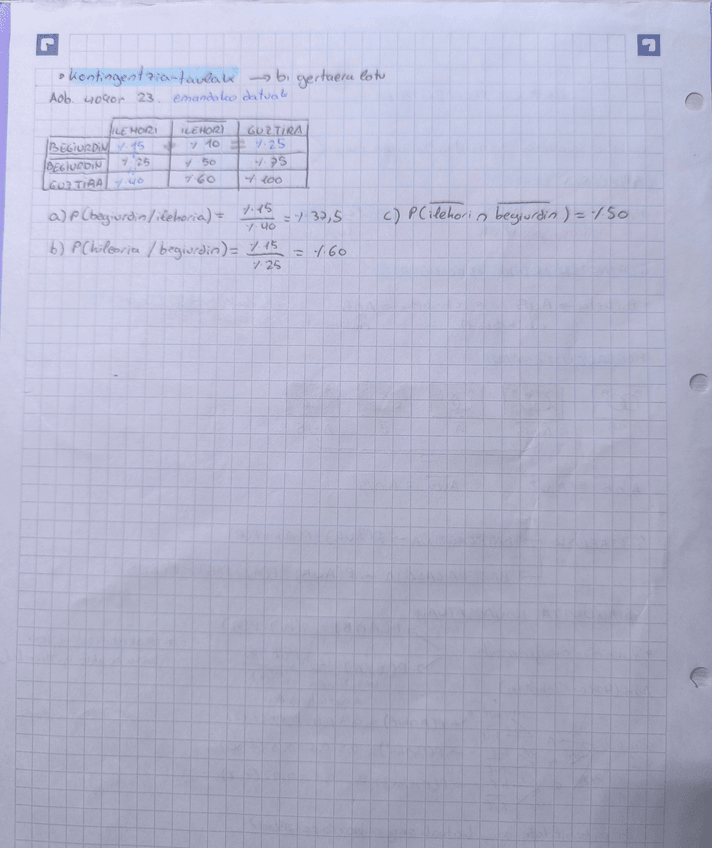 • Kontingentzia-taulak → bi gertaera lotu
Adb. 23. emandako datuak
ILEHORI | I̅L̅E̅H̅O̅R̅I̅ | GUZTIRA
BEGIURDIN | % 15 + | % 10 = | % 25
B̅E̅G̅I̅U̅R̅D̅I̅N̅ | % 25 | % 50 | % 75
GUZTIRA | % 40 | % 60 | % 100
a) P(begiurdin/ilehoria) = % 15 / % 40 = % 37,5
b) P(hileoria / begiurdin) = % 15 / % 25 = % 60
c) P(i̅l̅e̅h̅o̅r̅i̅ ∩ b̅e̅g̅i̅u̅r̅d̅i̅n̅) = % 50